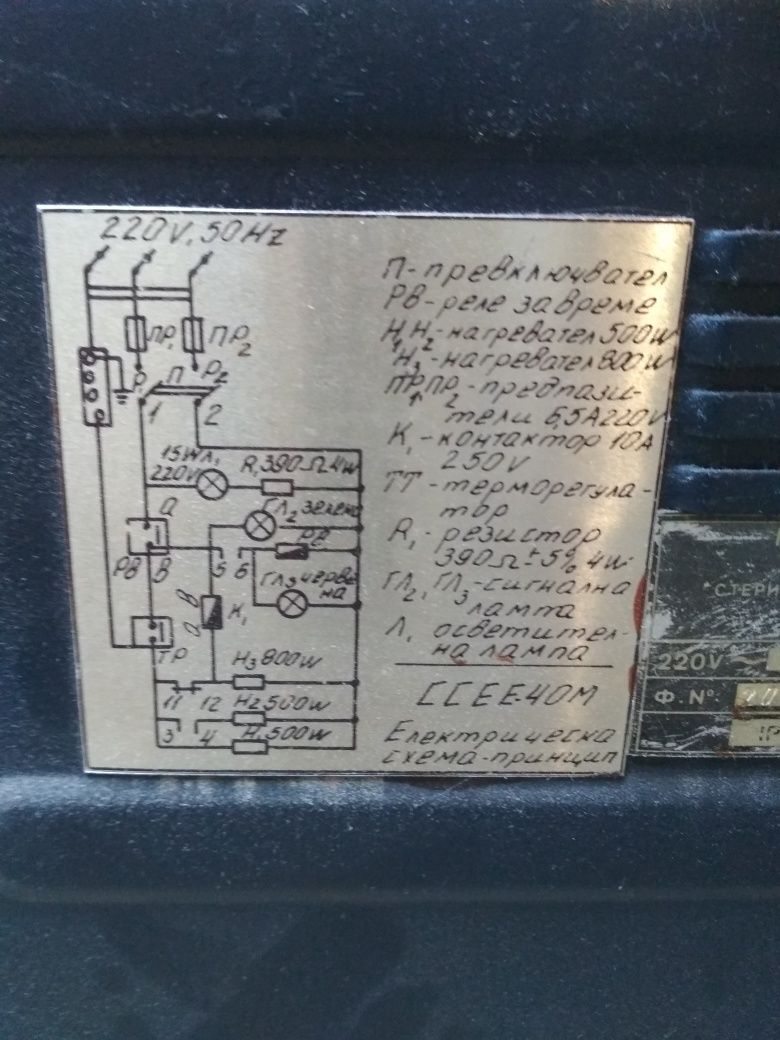 220V, 50Hz
ПР₁
ПР₂
P₁ П P₂
1 2
15W Л₁
220V
R₁ 390Ω 4W
а
ГЛ₂ зелена
РВ
РВ в 5 6
ГЛ₃ черве
на
а в
К₁
ТР
Н₃ 800W
11 12
Н₂ 500W
3 4
Н₁ 500W
П-превключвател
РВ-реле за време
Н₁Н₂-нагревател 500W
Н₃-нагревател 800W
ПР₁ПР₂-предпази-
тели 6,5А220V
К₁-контактор 10А
250V
ТТ-терморегула-
тор
R₁-резистор
390Ω±5% 4W
ГЛ₂, ГЛ₃-сигнална
лампа
Л₁ осветител-
на лампа
ССЕЕ.40М
Електрическа
схема-принцип
СТЕРИ
220V ~
Ф. №
IP